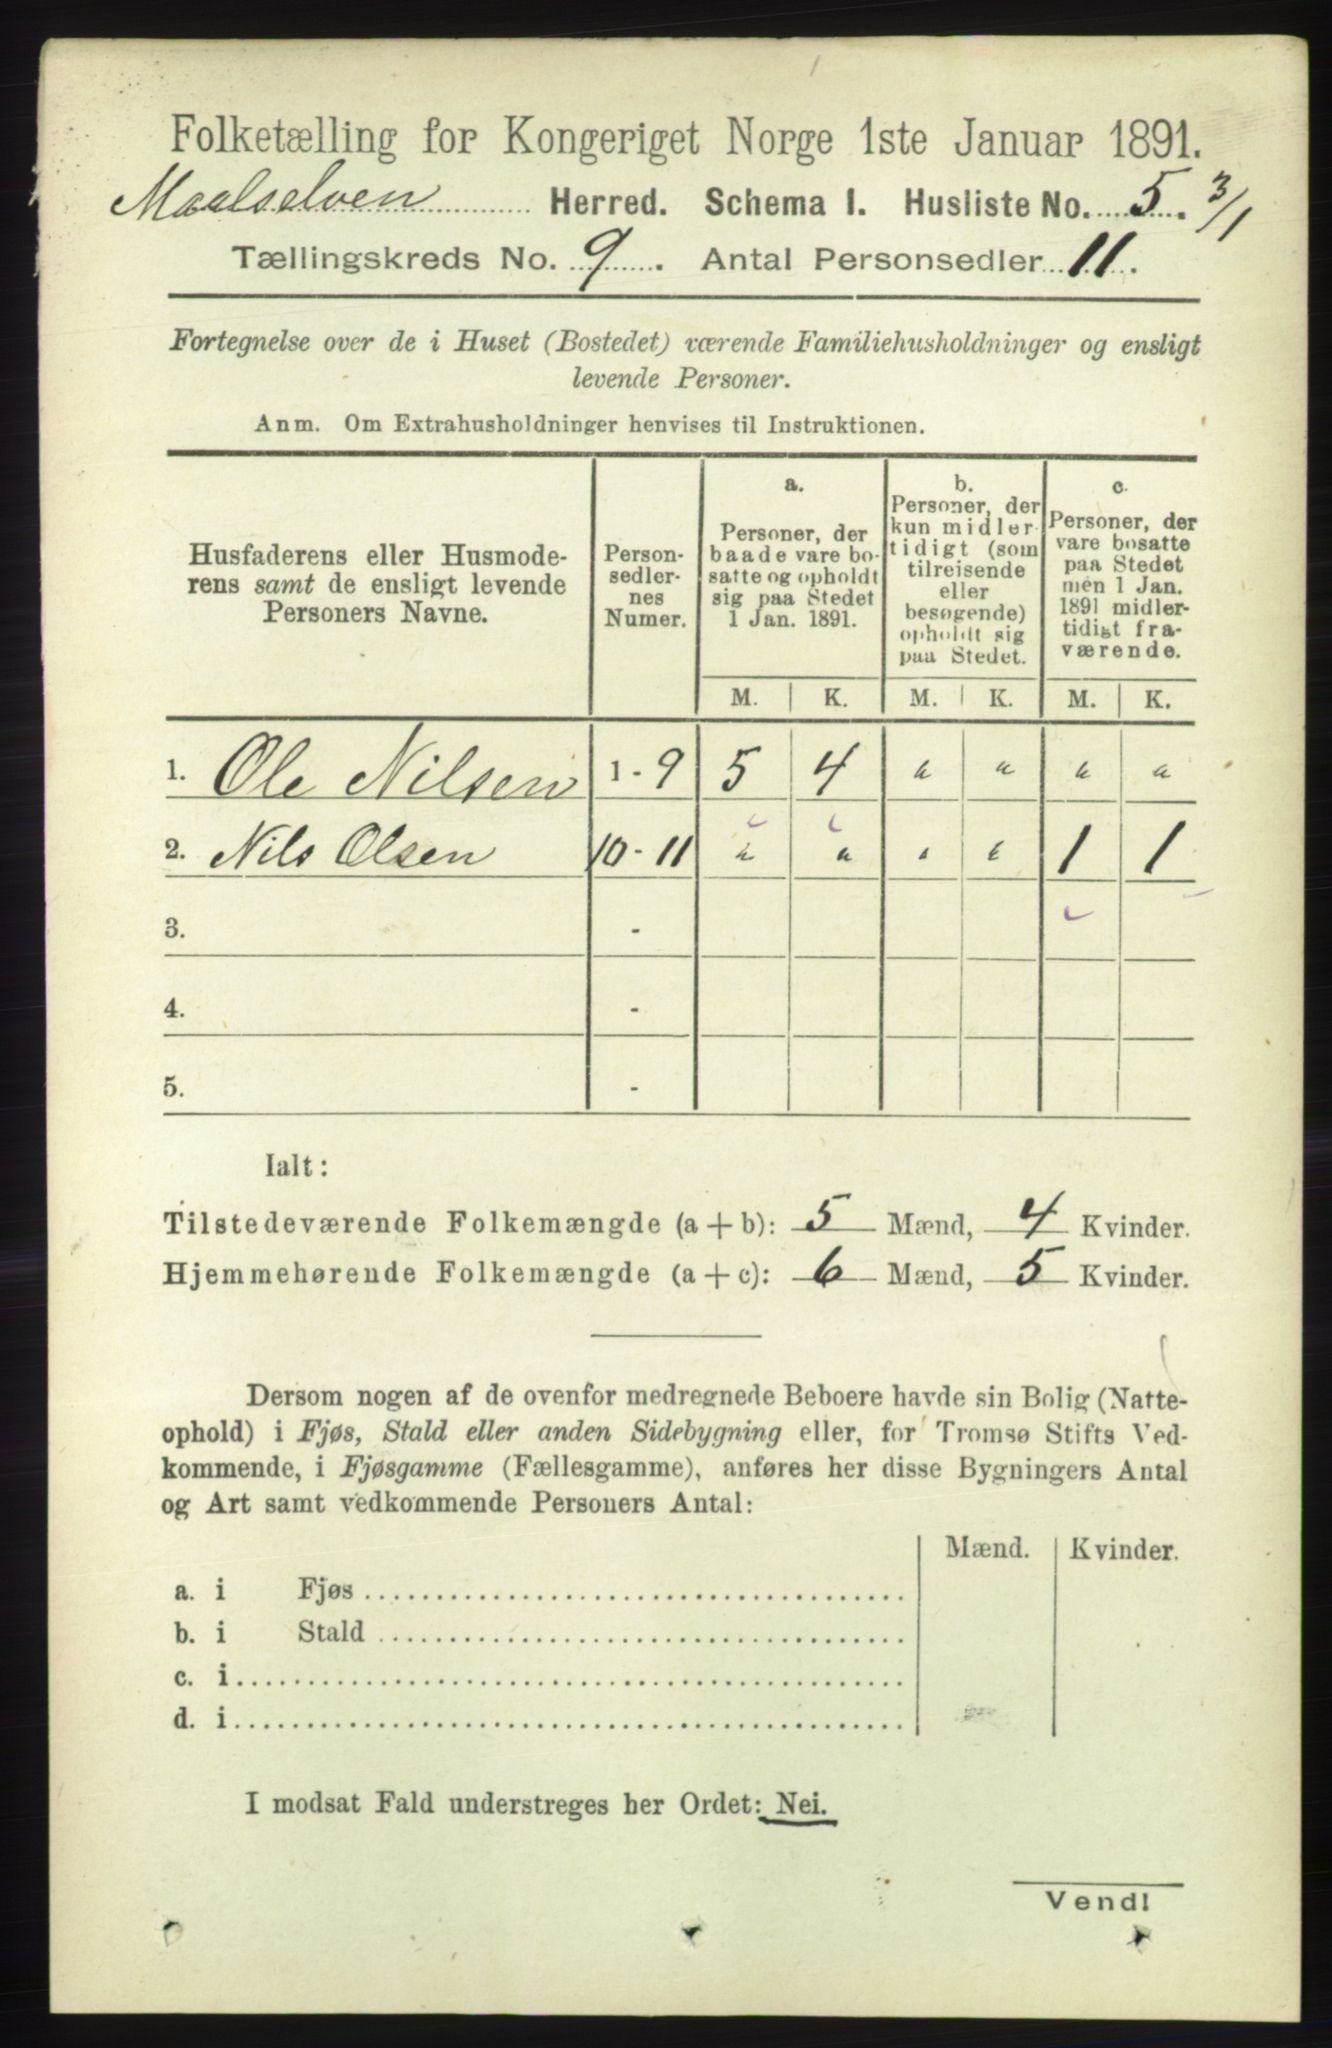 Folketælling for Kongeriget Norge 1ste Januar 1891.
Maalselven Herred. Schema I. Husliste No. 5. 3/1
Tællingskreds No. 9. Antal Personsedler 11.
Fortegnelse over de i Huset (Bostedet) værende Familiehusholdninger og ensligt
levende Personer.
Anm. Om Extrahusholdninger henvises til Instruktionen.
Husfaderens eller Husmode-
rens samt de ensligt levende
Personers Navne.
Person-
sedler-
nes
Numer.
a.
Personer, der
baade vare bo-
satte og opholdt
sig paa Stedet
1 Jan. 1891.
b.
Personer, der
kun midler-
tidigt (som
tilreisende
eller
besøgende)
opholdt sig
paa Stedet.
c.
Personer, der
vare bosatte
paa Stedet
men 1 Jan.
1891 midler-
tidigt fra-
værende.
M. K. M. K. M. K.
1. Ole Nilsen 1 - 9 5 4 " " " "
2. Nils Olsen 10 - 11 " " " " 1 1
3. -
4. -
5. -
Ialt:
Tilstedeværende Folkemængde (a + b): 5 Mænd, 4 Kvinder.
Hjemmehørende Folkemængde (a + c): 6 Mænd, 5 Kvinder.
Dersom nogen af de ovenfor medregnede Beboere havde sin Bolig (Natte-
ophold) i Fjøs, Stald eller anden Sidebygning eller, for Tromsø Stifts Ved-
kommende, i Fjøsgamme (Fællesgamme), anføres her disse Bygningers Antal
og Art samt vedkommende Personers Antal:
Mænd. Kvinder.
a. i Fjøs
b. i Stald
c. i
d. i
I modsat Fald understreges her Ordet: Nei.
Vend!